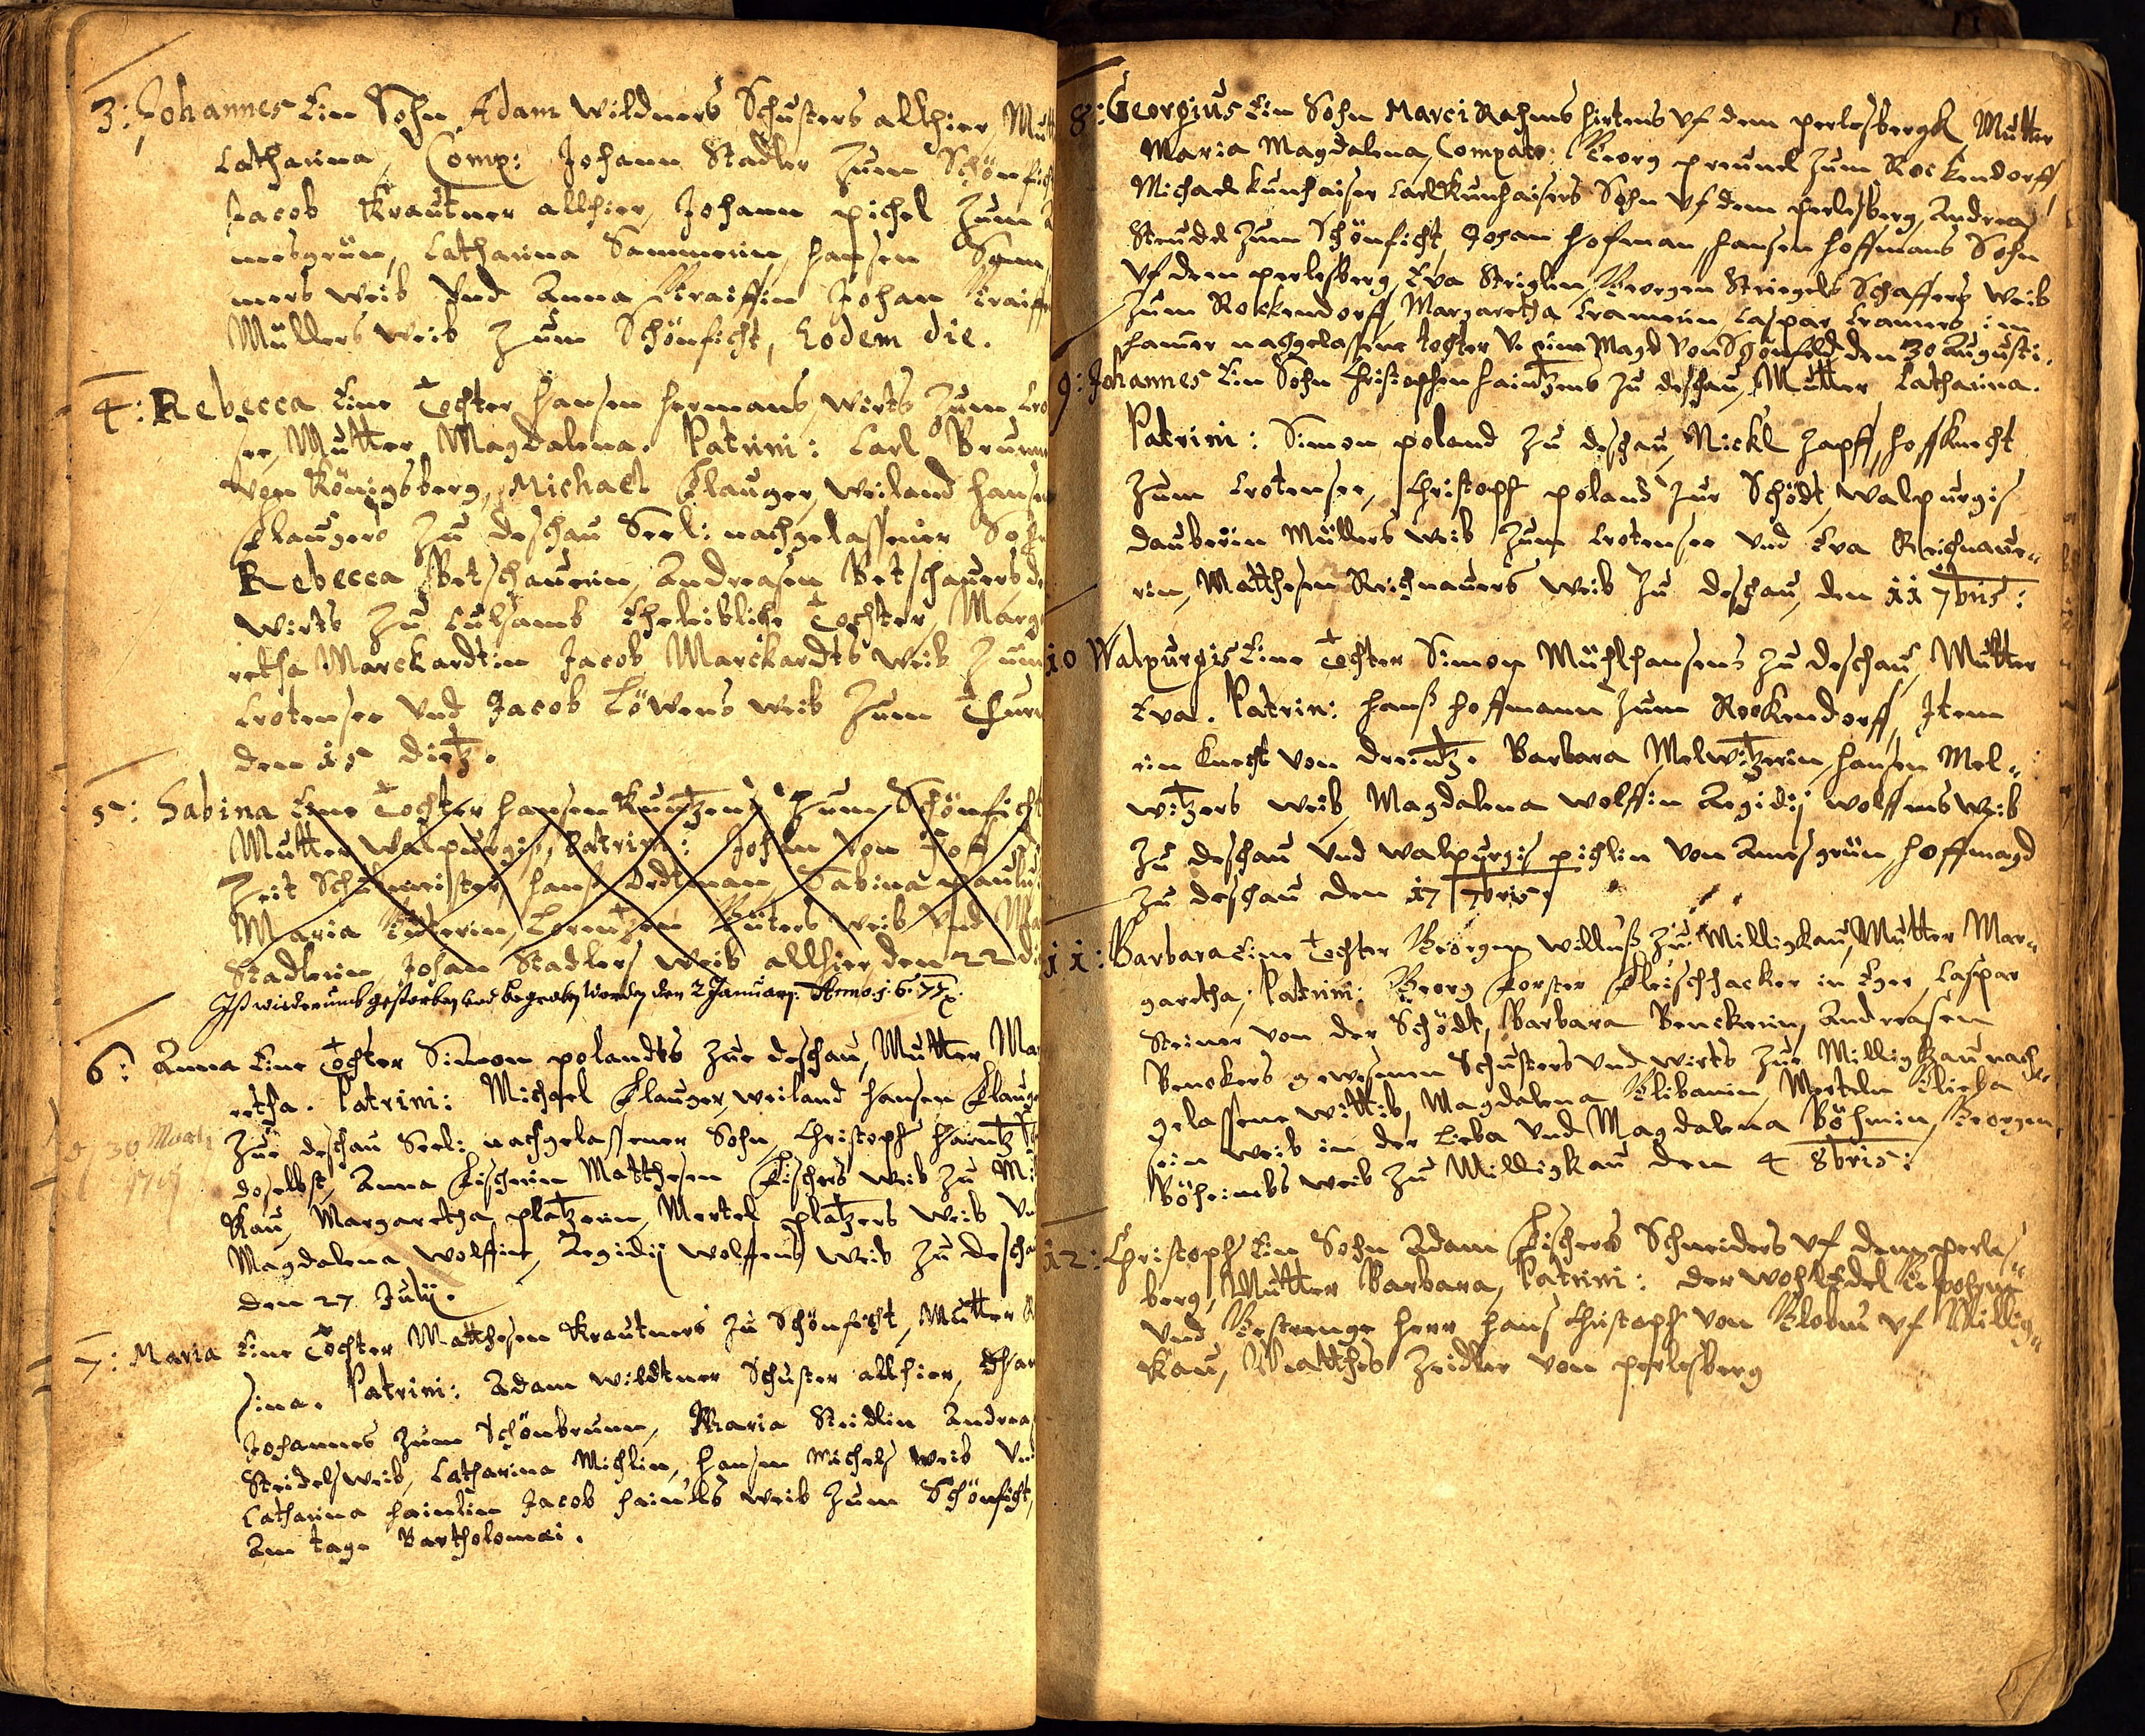 3: Johannes Ein Sohn Adam Wildners Schusters allhier, Mutt
Catharina, Comp: Johann Stadler zum Schönficht
Jacob Krautner allhier, Johann pichel zum
mesgrün, Catharina Sammerin, Hansen Sam
mers weib Vnd Anna Kraissin Johan Kraiss
Müllers weib zum Schönficht, Eodem die.
4: Rebecca Eine Tochter Hansen Hermans, Wirts zum Cro
see, Mutter Magdalena. Patrini: Carl Brunn
von Königsberg, Michael Flauger, weiland Hansen
Flaugers zu deschau Seel: nachgelassener Sohn
Rebecca Betschauerin, Andreasen Betschauers d
Wirts zu Culsamb Eheleibliche Tochter, Marg
retha Marckardtin Jacob Marckardts weib zum
Crotensee Vnd Jacob Löwens weib zum Thurn
den 15 dietz.
5: Sabina Eine Tochter Hansen Kuntzens zum Schönficht
Mutter Walpurgis, Patrini: Johan von Hoff
Zeit Schulmeister, Hanß Erdtman, Sabina paulus
Maria Güterin, Lorentzen Güters weib Vnd Ma
Stadlerin, Johan Stadlers weib allhier, den 22 di
Ist wiederumb gestorben und begraben worden den 2 January: Anno 1677.
6: Anna Eine Tochter Simon polandts zue deschau, Mutter Ma
retha. Patrini: Michael Flauger, weiland Hansen Flauge
zue deschau Seel: nachgelassener Sohn, Christoph Haintz
30 Marti
doselbst, Anna Fischerin Matthesen Fischers weib zu Mi
Kau, Margaretha platzerin, Mertel platzers weib Vn
Magdalena wolffin, Aegidij wolffens weib zu descha
den 27 Julij.
7: Maria Eine Tochter Matthesen Krautners zu Schönficht, Mutter R
sina. Patrini: Adam wildtner Schuster allhier,
Johannes zum Schönbrunn, Maria Steidlin Andrea
Steidels weib, Catharina Michlin, Hansen Michels weib Vnd
Catharina Hainlin Jacob Hainls weib zum Schönficht,
Am tage Bartholomæi.
8: Georgius Ein Sohn Marci Rahms Hirtens Vf dem perlesbergk, Mutter
Maria Magdalena, Compatr: Georg preunel zum Rockendorff,
Michael Kunhaiser Carl Kunhaisers Sohn Vf dem perlesberg, Andrea
Steudel zum Schönficht, Johan Hofman, Hansen Hoffmans Sohn
Vf dem perlesberg, Eva Striglin, Georgen Striegels Schaffers weib
zum Rockendorff, Margaretha Cramerin Caspar Cramers im
Hamer nachgelassene tochter V. eine Magd von Schönfeld den 30 Augusti.
9: Johannes Ein Sohn Christophen Haintzens zu deschau, Mutter Catharina.
Patrini: Simon poland zu deschau, Nickl Zapff, Hoffknecht
zum Crotensee, Christoph poland zur Schödt, Walpurgis
dauberin Müllers weib zum Crotensee Vnd Eva Reichnaue-
rin, Matthesen Reichnauers weib zu deschau, den 11 7bris:
10 Walpurgis Eine Tochter Simon Mühlhansens zu deschau, Mutter
Eva. Patrin: Hanß Hoffmann zum Rockendorff, Item
ein Knecht von Treinitz. Barbara Melwitzerin, Hansen Mel-
witzers weib, Magdalena wolffin Aegidij wolffens weib
zu deschau Vnd walpurgis pichlin von Amesgrün Hoffmagd
zu deschau den 17 7bris.
11: Barbara Eine Tochter Georgen willuß zu Milligkau, Mutter Mar-
garetha, Patrini: Georg Forster Fleischhacker in Eger, Caspar
Steiner von der Schödt, Barbara Benckerin, Andreasen
Benckers gewesenen Schusters Vnd wirts zue Milligkau nach-
gelassene Wittib, Magdalena Klibanin, Merteln Klieba
ein weib in der Lieba Vnd Magdalena Böhmin, Georgen
Böheimbs weib zu Milligkau den 4 8bris:
12: Christoph Ein Sohn Adam Fischers Schneiders Vf dem perles-
berg, Mutter Barbara, Patrini: der wohlEdel Gebohrne
Vnd Gestrenge Herr Hans Christoph von Globen Vf Millig-
kau, Matthes Zeidler von perlesberg